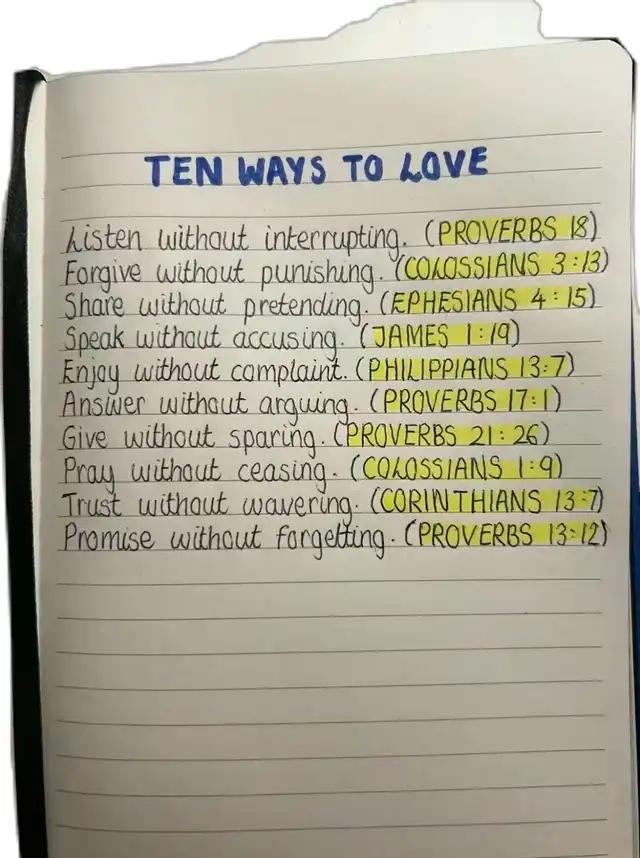 TEN WAYS TO LOVE
Listen without interrupting. (PROVERBS 18)
Forgive without punishing. (COLOSSIANS 3:13)
Share without pretending. (EPHESIANS 4:15)
Speak without accusing. (JAMES 1:19)
Enjoy without complaint. (PHILIPPIANS 13:7)
Answer without arguing. (PROVERBS 17:1)
Give without sparing. (PROVERBS 21:26)
Pray without ceasing. (COLOSSIANS 1:9)
Trust without wavering. (CORINTHIANS 13:7)
Promise without forgetting. (PROVERBS 13:12)